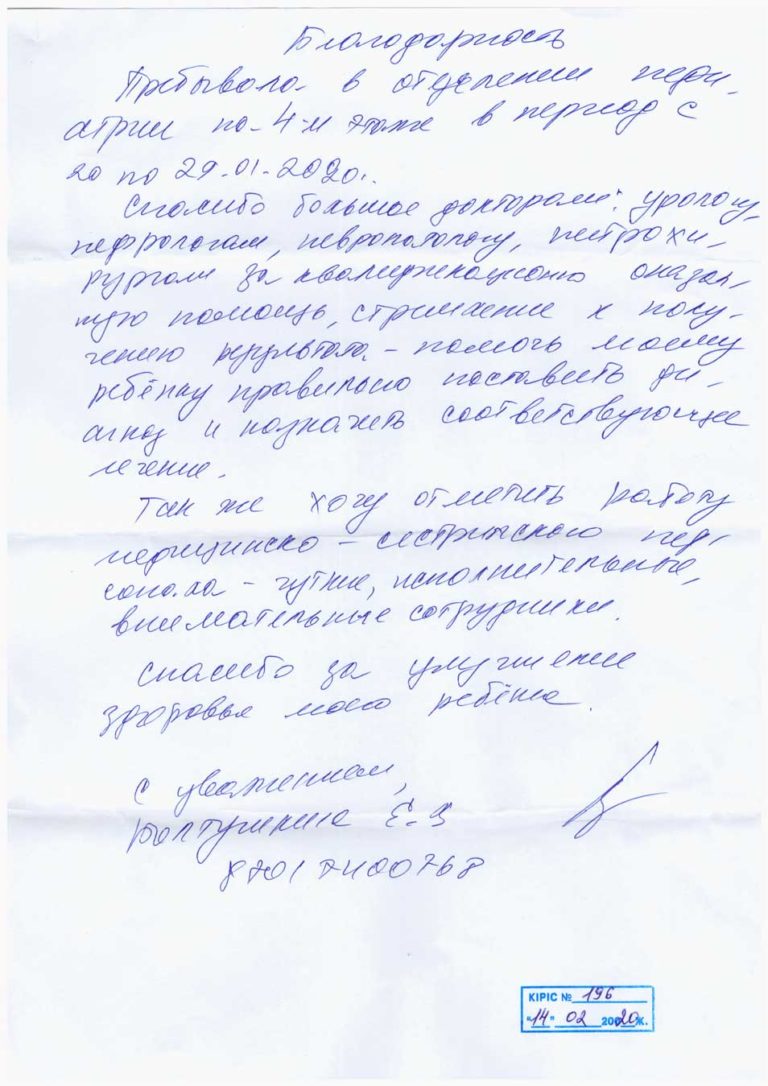 Благодарность
Пребывала в отделении педи-
атрии на 4-м этаже в период с
20 по 29.01.2020г.
Спасибо большое докторам: урологу,
нефрологам, невропатологу, нейрохи-
рургам за квалификационо оказан-
ную помощь, стримление к полу-
чению результата - помочь моему
ребёнку правильно поставить ди-
агноз и назначить соответствующее
лечение.
Так же хочу отметить работу
медицинско - сестринского пер-
сонала - чуткие, исполнительные,
внимательные сотрудники.
Спасибо за улучшение
здоровья моего ребёнка.
С уважением,
Е.
КІРІС № 196
"14" 02 2020ж.